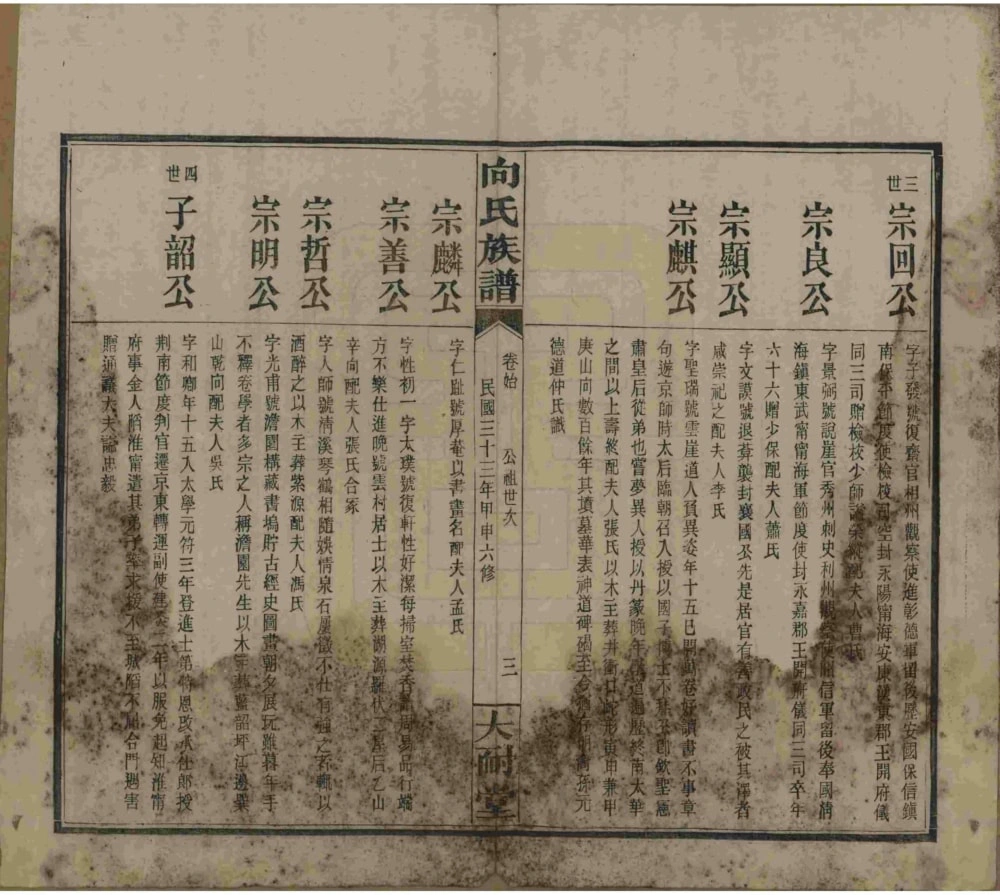 三世
宗回公
字子發號復齋官相州觀察使進彰德軍留後歷安國保信鎮
南保平節度使檢校司空封永陽甯海安康漢東郡王開府儀
同三司贈檢校少師諡榮縱配夫人曹氏
宗良公
字景弼號說崖官秀州刺史利州觀察使昭信軍留後奉國清
海鎮東武甯甯海軍節度使封永嘉郡王開府儀同三司卒年
六十六贈少保配夫人蕭氏
宗顯公
字文謨號退葊襲封襄國公先是居官有善政民之被其澤者
咸崇祀之配夫人李氏
宗麒公
字聖瑞號雲崖道人負異姿年十五已開勵卷好讀書不事章
句遊京師時太后臨朝召入授以國子博士不拜
肅皇后從弟也嘗夢異人授以丹篆晚年 道遍歷終南太華
之間以上壽終配夫人張氏以木主葬井衝口 形寅甲兼甲
庚山向數百餘年其墳墓華表神道碑碣至今猶存 裔孫元
德道仲氏識
向氏族譜
卷始
公祖世次
民國三十三年甲申六修
三
大耐堂
宗麟公
字仁趾號厚菴以書畫名配夫人孟氏
宗善公
字性初一字太璞號復軒性好潔每掃室焚香 周易品行端
方不樂仕進晚號雲村居士以木主葬湖源羅伏 屋后乙山
辛向配夫人張氏合冢
宗哲公
字人師號清溪琴鶴相隨娛情泉石屢徵不仕有強之者輒以
酒醉之以木主葬紫源配夫人馮氏
宗明公
字光甫號澹園構藏書塢貯古經史圖畫朝夕展玩雖暮年手
不釋卷學者多宗之人稱澹園先生以木主葬藍韶坪江邊巽
山乾向配夫人吳氏
四世
子韶公
字和卿年十五入太學元符三年登進士第特恩改承仕郎授
荆南節度判官遷京東轉運副使建炎二年以服免起知淮甯
府事金人陷淮甯遣其弟子率求援不至城陷不屈合門遇害
贈通議大夫諡忠毅